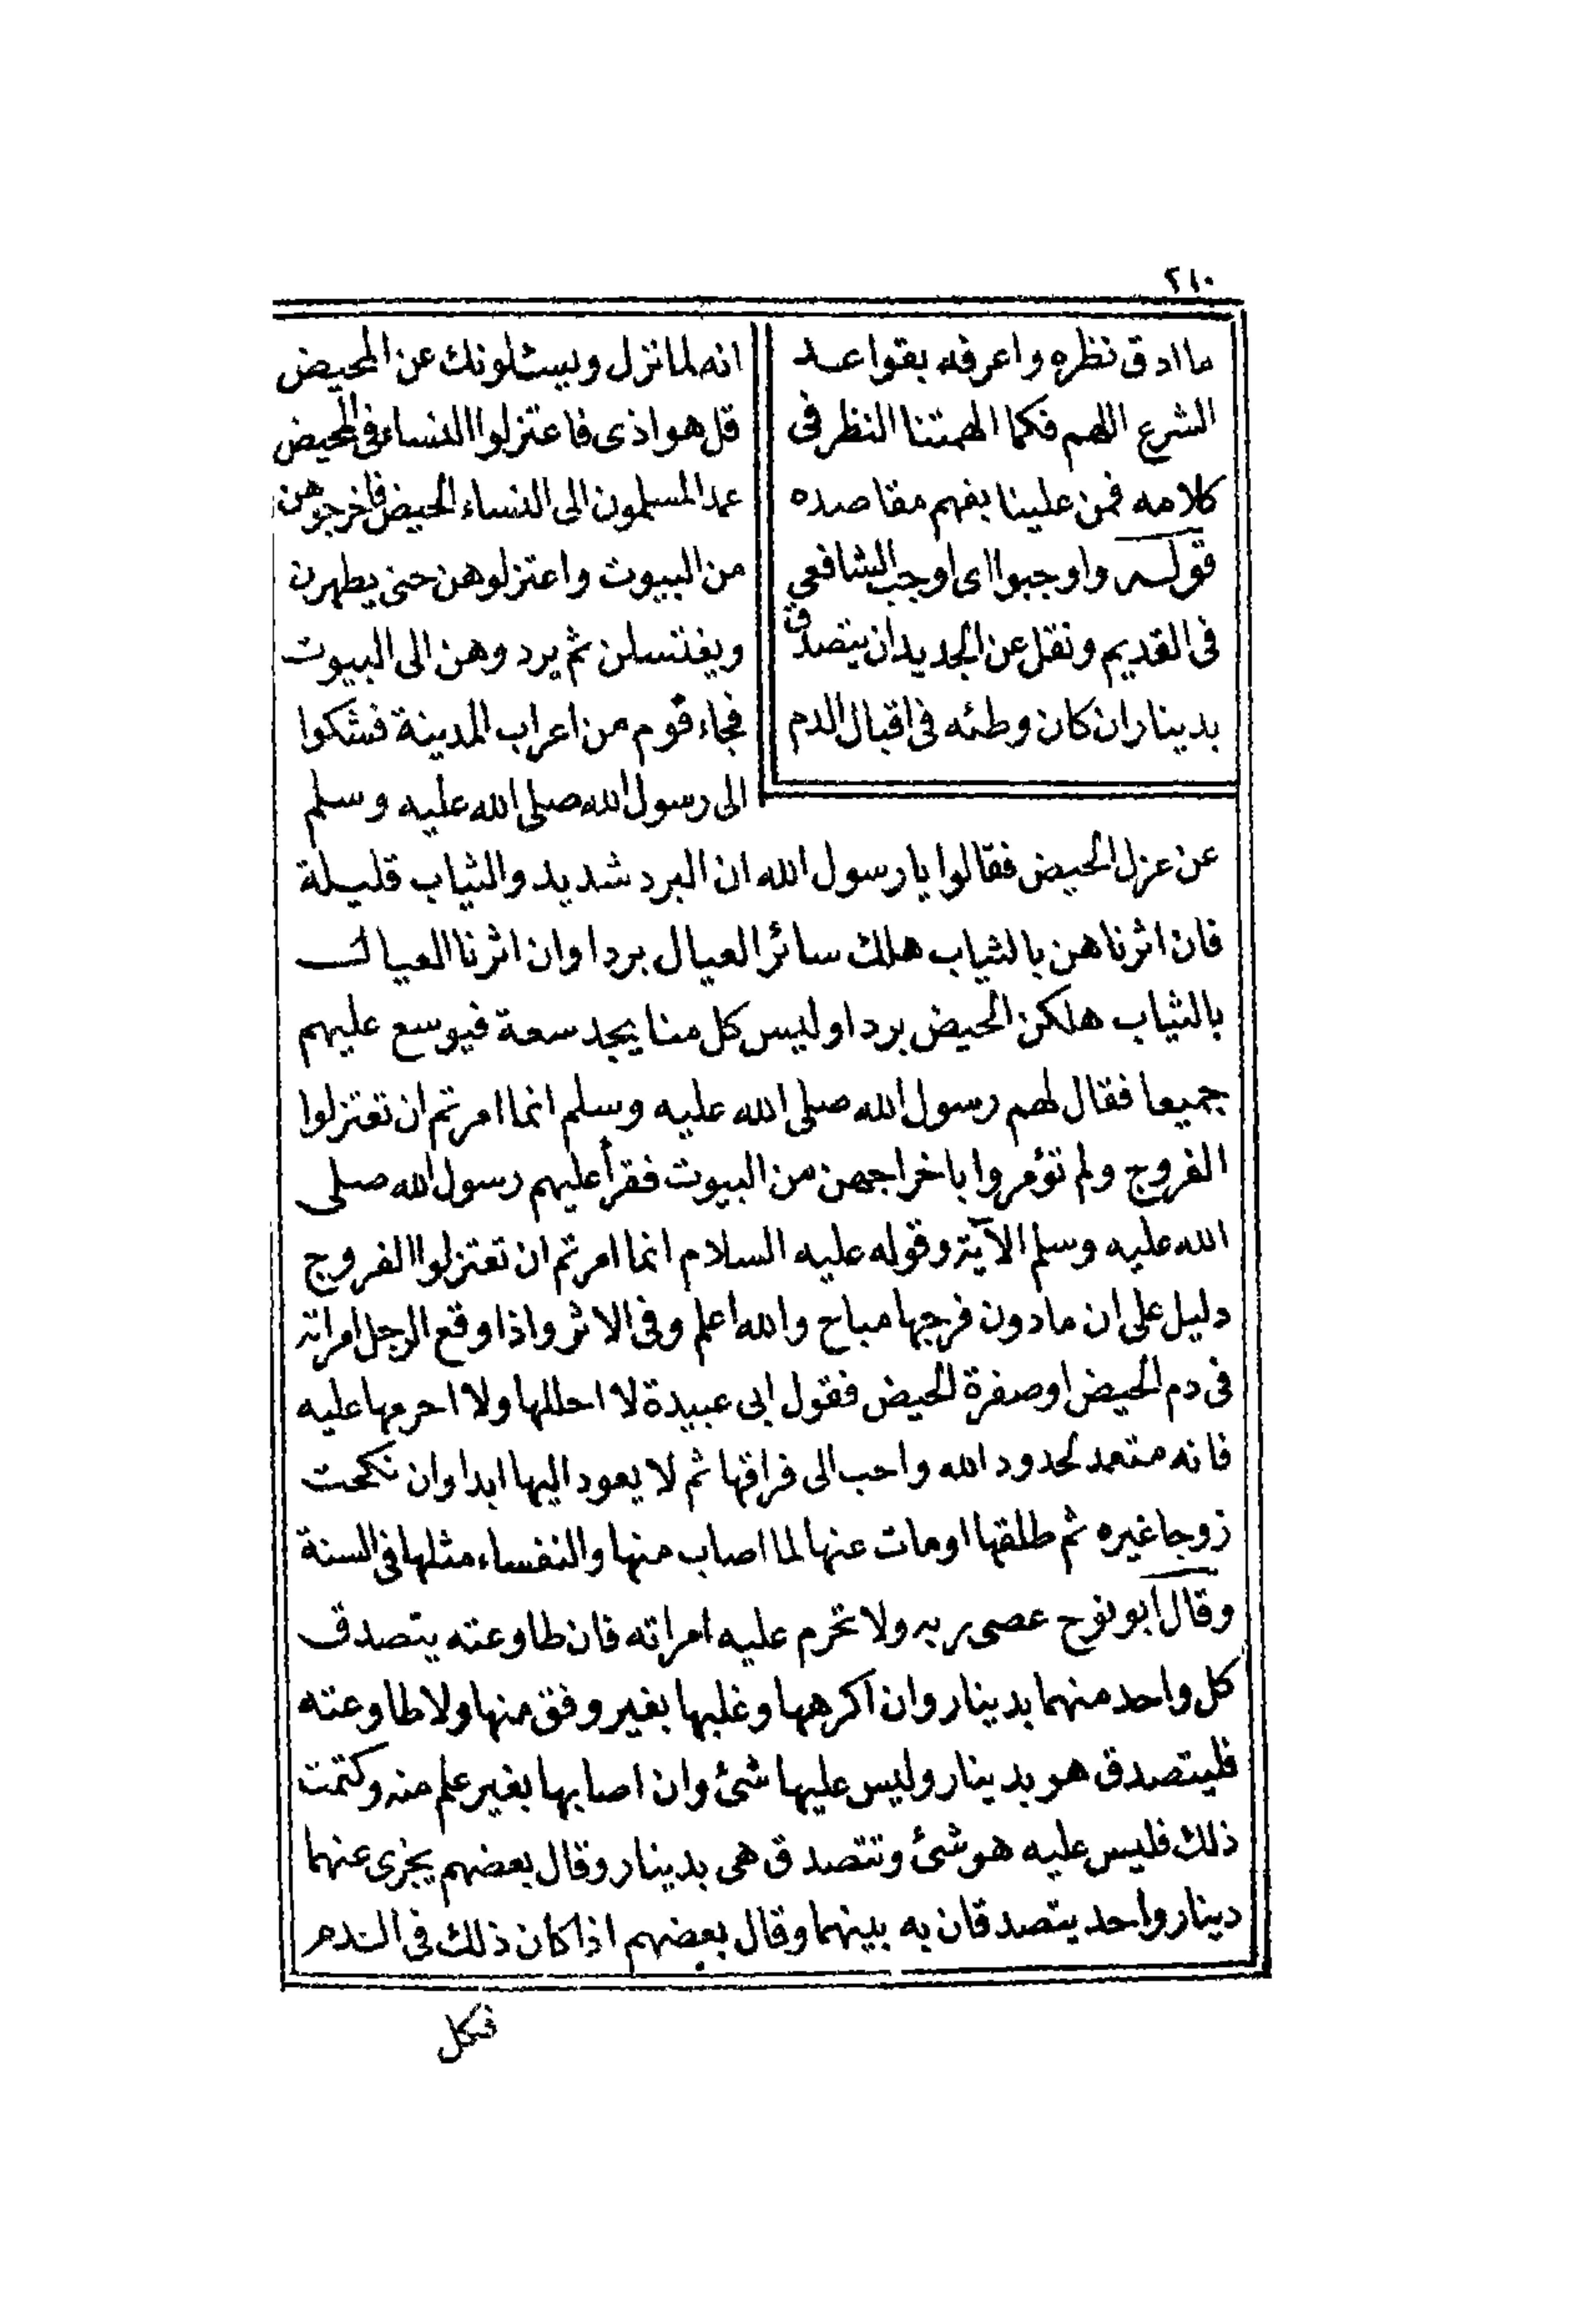 ٢١٠
ما ادق نظره واعرفه بقواعد
الشرع اللهم فكما الهمتنا النظر فى
كلامه فمن علينا بفهم مقاصده
قوله واوجبوا اى اوجب الشافعي
فى القديم ونقل عن الجديد ان يتصدق
بدينار ان كان وطئه فى اقبال الدم
انه لما نزل ويسئلونك عن المحيض
قل هو اذى فاعتزلوا النساء فى المحيض
عمد المسلمون الى النساء الحيض فاخرجوهن
من البيوت واعتزلوهن حتى يطهرن
ويغتسلن ثم يردوهن الى البيوت
فجاء قوم من اعراب المدينة فشكوا
الى رسول الله صلى الله عليه وسلم
عن عزل الحيض فقالوا يا رسول الله ان البرد شديد والثياب قليلة
فان اثرناهن بالثياب هلك سائر العيال بردا وان اثرنا العيال
بالثياب هلكن الحيض بردا وليس كل منا يجد سعة فيوسع عليهم
جميعا فقال لهم رسول الله صلى الله عليه وسلم انما امرتم ان تعتزلوا
الفروج ولم تؤمروا باخراجهن من البيوت فقرأ عليهم رسول الله صلى
الله عليه وسلم الآية وقوله عليه السلام انما امرتم ان تعتزلوا الفروج
دليل على ان ما دون فرجها مباح والله اعلم وفى الاثر واذا وقع الرجل امراته
فى دم الحيض او صفرة الحيض فقول ابى عبيدة لا احللها ولا احرمها عليه
فانه متعمد لحدود الله واحب الى فراقها ثم لا يعود اليها ابدا وان نكحت
زوجا غيره ثم طلقها او مات عنها لما اصاب منها والنفساء مثلها فى السنة
وقال ابو نوح عصى ربه ولا تحرم عليه امراته فان طاوعته يتصدق
كل واحد منهما بدينار وان اكرهها وغلبها بغير وفق منها ولا طاوعته
فليتصدق هو بدينار وليس عليها شئ وان اصابها بغير علم منه وكتمت
ذلك فليس عليه هو شئ وتتصدق هى بدينار وقال بعضهم يجزى عنهما
دينار واحد يتصدقان به بينهما وقال بعضهم اذا كان ذلك فى الدم
فكل